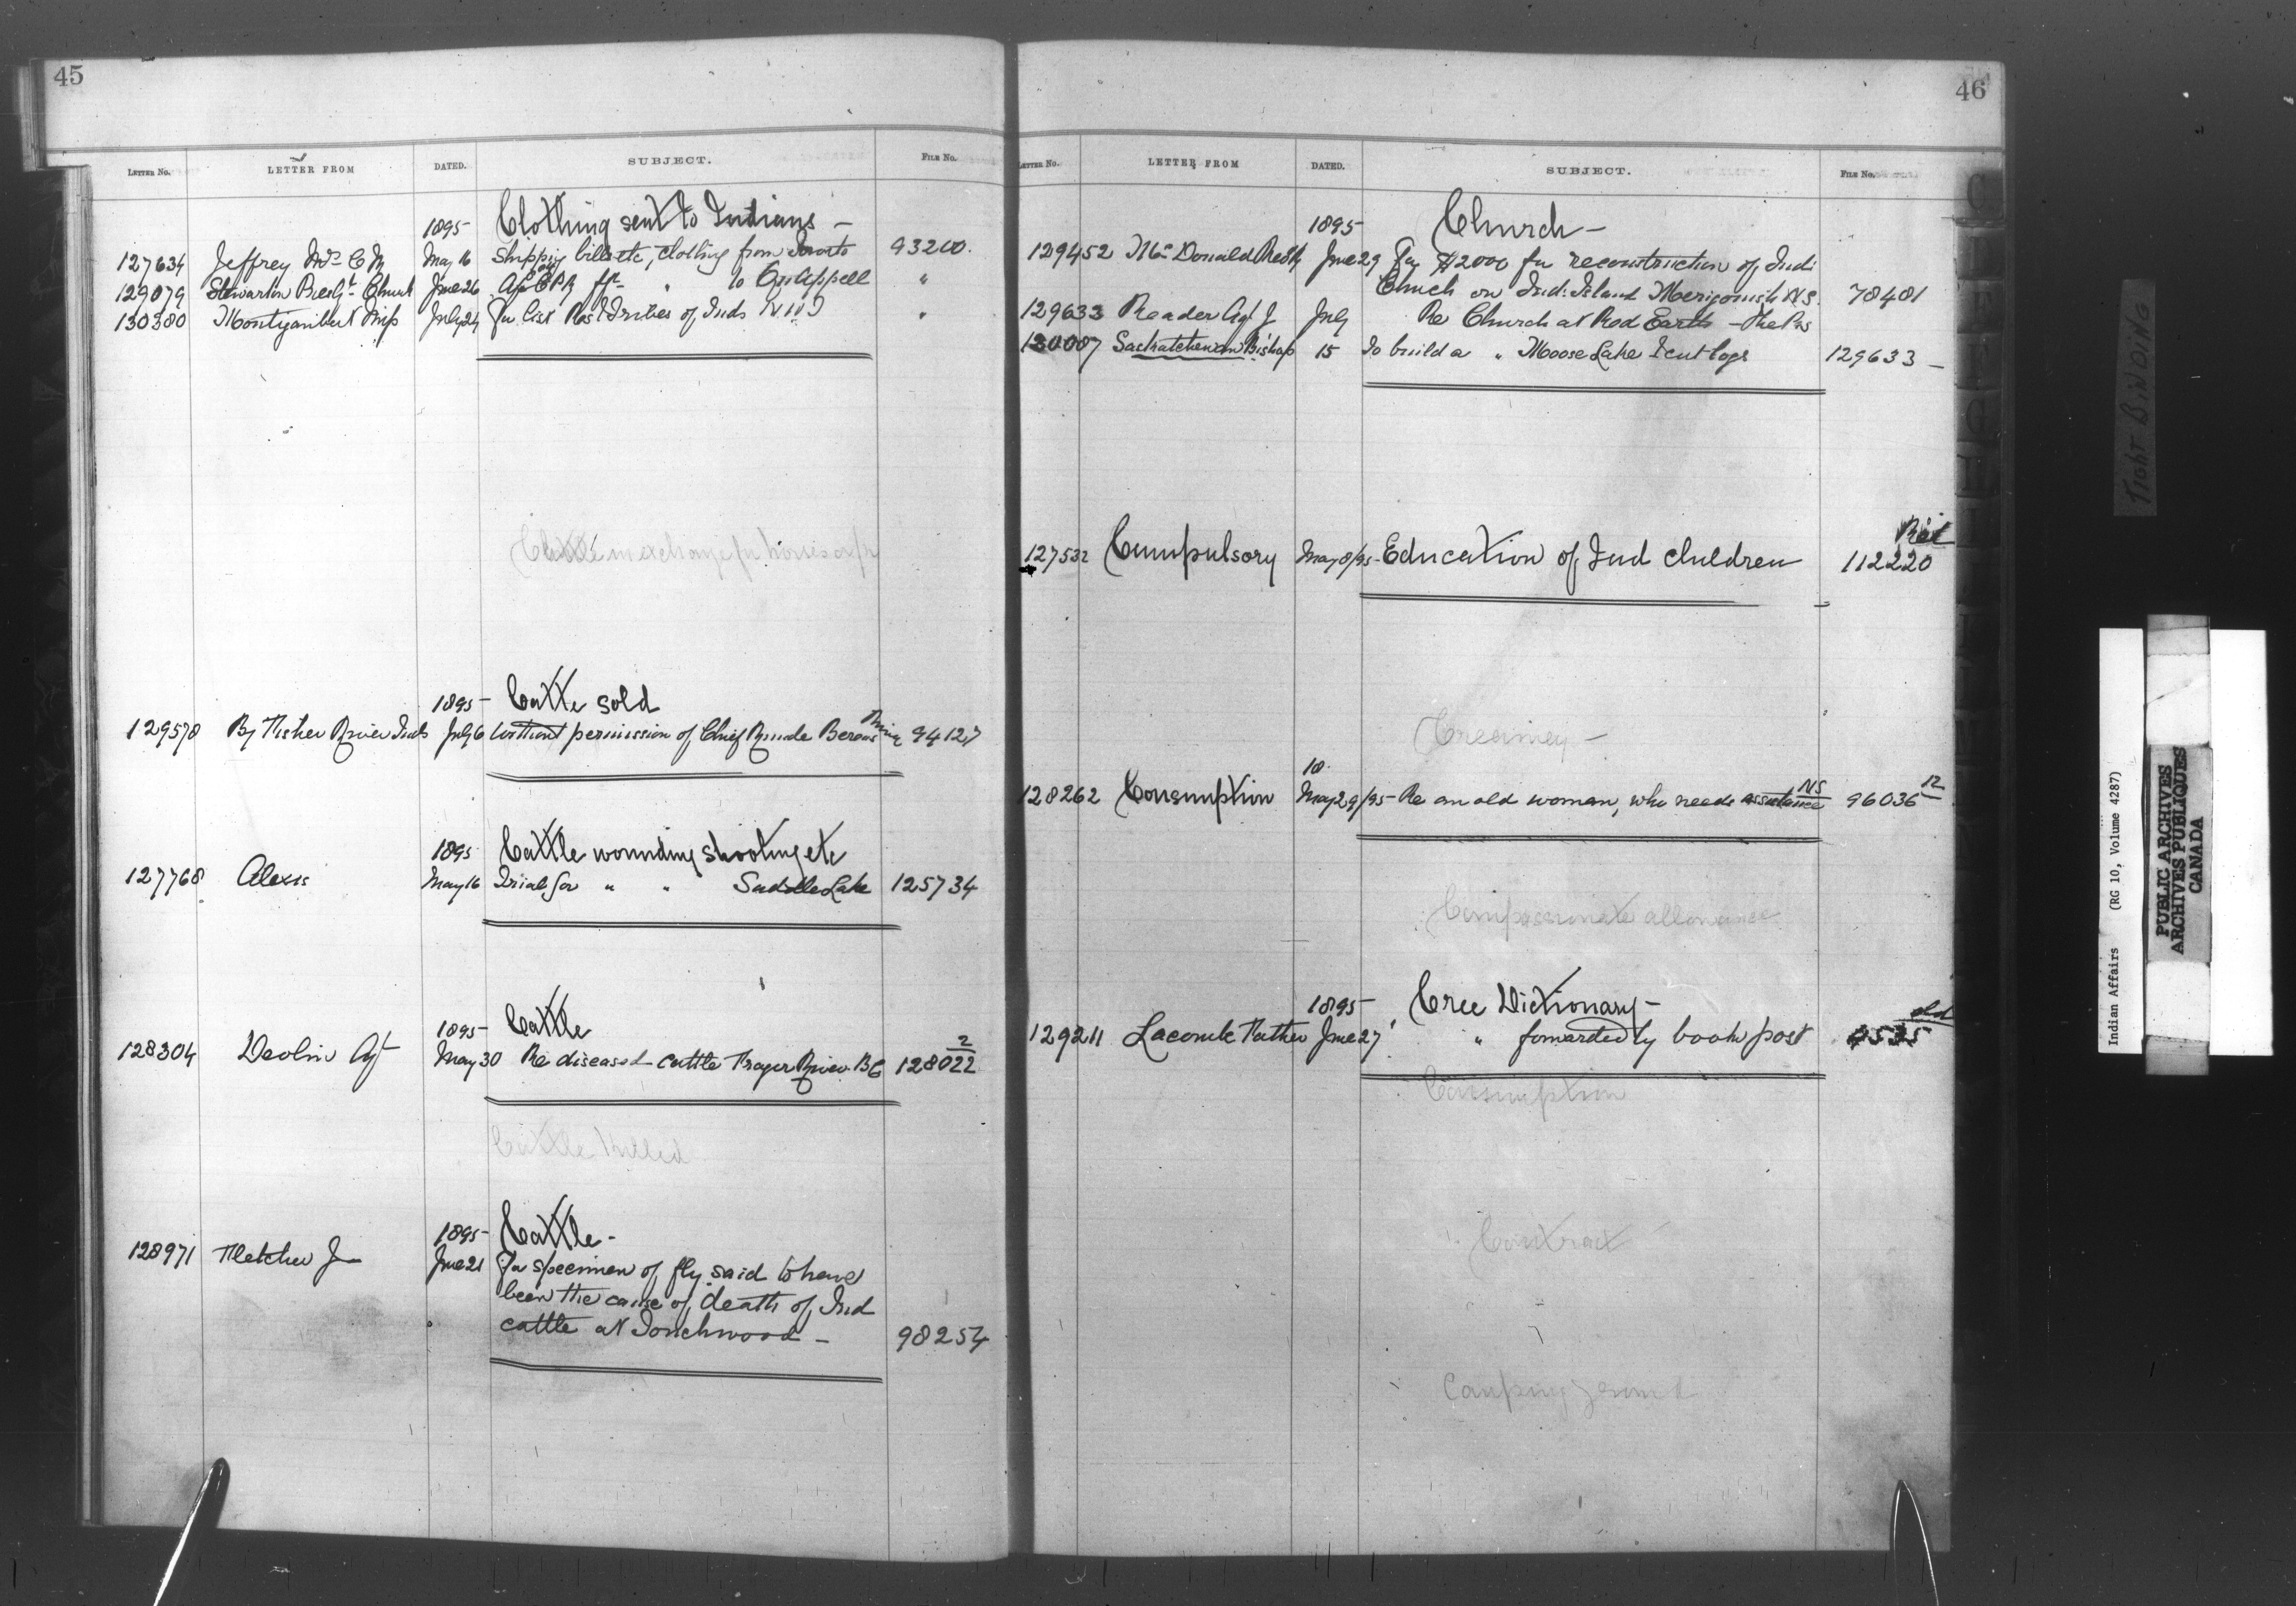 45
LETTER No. LETTER FROM DATED. SUBJECT. FILE No.
1895 Clothing sent to Indians —
127634 Jeffrey Mrs C M May 16 Shipping bills etc, clothing from 93200.
129079 Stewarton Presbt Church June 26 CPR frt " to Qu'Appell "
130380 Montizambert Miss July 24 For list of Inds N W T "
Cattle in exchange for horses
1895 Cattle sold
129578 By Fisher River Inds July 6 Without permission of Chief Berens River 94127
1895 Cattle wounding shooting etc
127768 Alexis May 16 Trial for " " Saddle Lake 125734
1895 Cattle
128304 Devlin Agt May 30 Re diseased cattle Frazer River BC 128022 2
Cattle killed
1895 Cattle -
128971 Fletcher J June 21 For specimen of fly said to have
been the cause of death of Ind
cattle at Touchwood — 98254
46
LETTER No. LETTER FROM DATED. SUBJECT. FILE No.
1895 Church —
129452 McDonald June 29 For $2000 for reconstruction of Ind:
Church on Ind: Island Merigomish N.S. 78401
129633 Reader Agt J July Re Church at Red Earth — The Pas
130007 Saskatchewan Bishop 15 To build a " Moose Lake & cut logs 129633 —
127532 Compulsory May 8/95 - Education of Ind children 112220
Creamery —
128262 Consumption May 29/95 - Re an old woman, who needs assistance NS 96036 12
Compassionate allowance
1895 Cree Dictionary —
129211 Lacombe Father June 27 " forwarded by book post old
Consumption
Contract
Camping ground
TIGHT BINDING
Indian Affairs (RG 10, Volume 4287)
PUBLIC ARCHIVES
ARCHIVES PUBLIQUES
CANADA